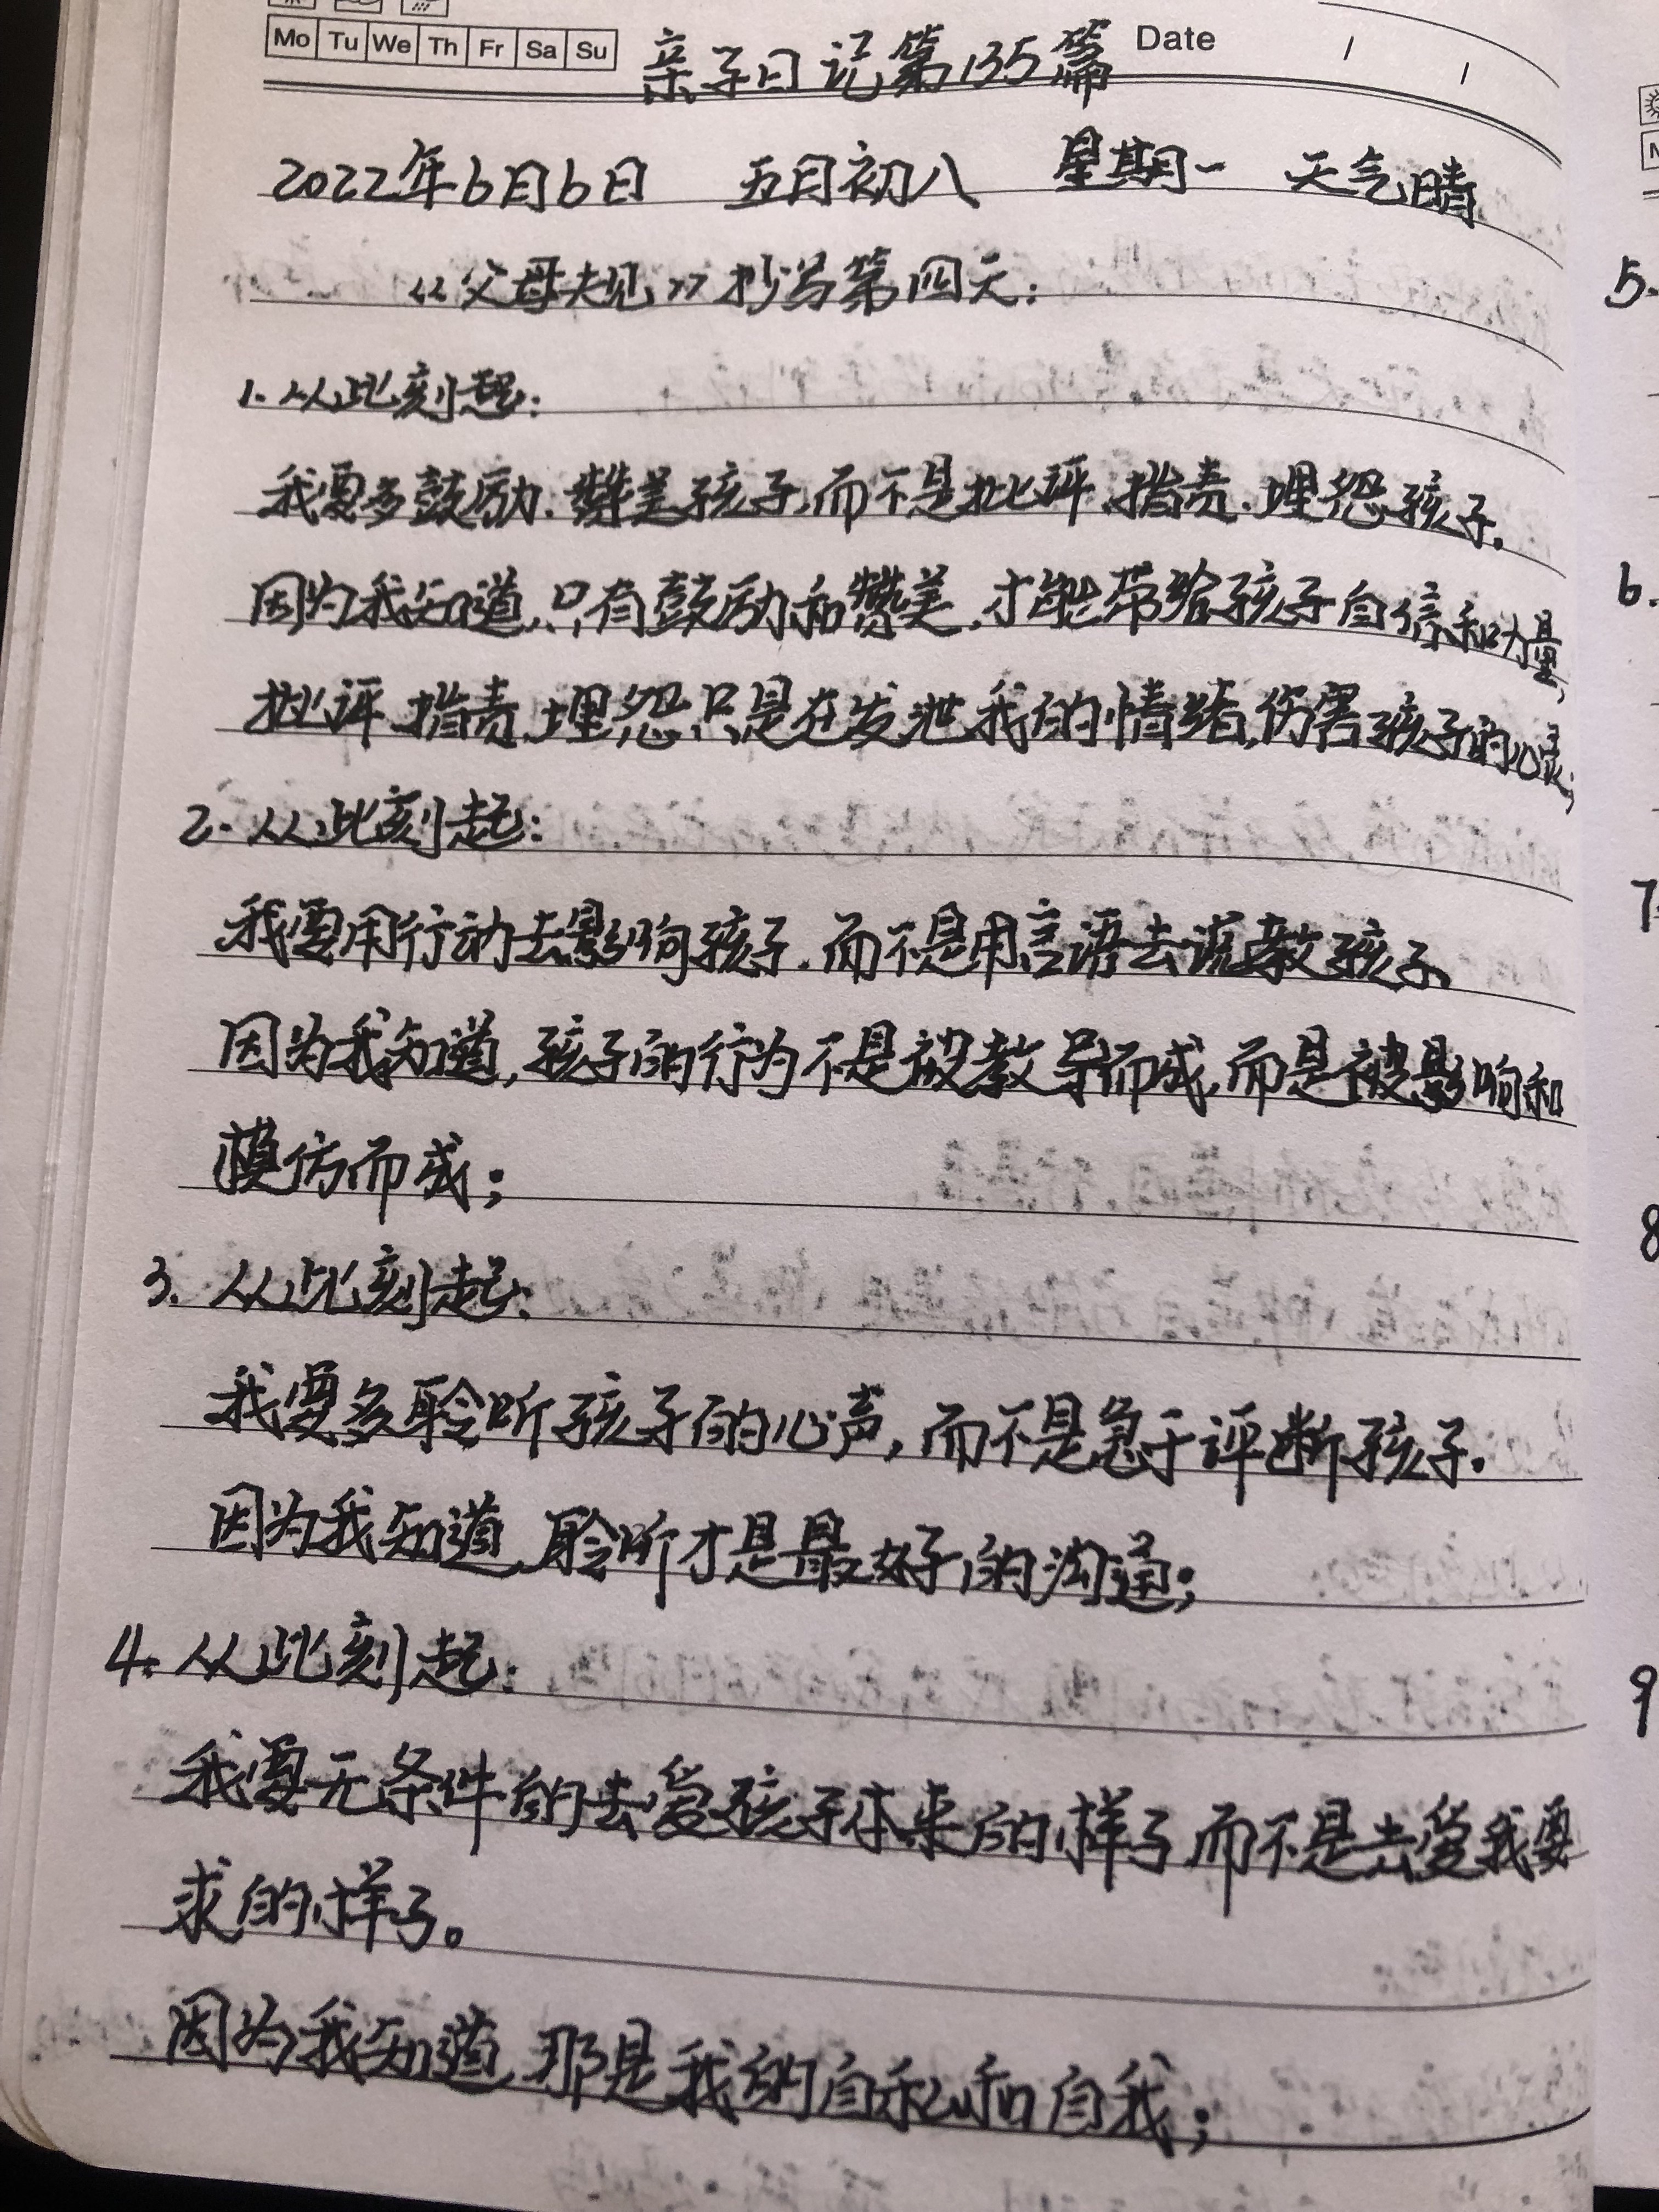 Mo Tu We Th Fr Sa Su
亲子日记第135篇
Date / /
2022年6月6日 五月初八 星期一 天气晴
《父母规》抄写第四天:
1.从此刻起:
我要多鼓励、赞美孩子,而不是批评、指责、埋怨孩子.
因为我知道,只有鼓励和赞美,才能带给孩子自信和力量,
批评、指责、埋怨只是在发泄我的情绪,伤害孩子的心灵;
2.从此刻起:
我要用行动去影响孩子.而不是用言语去说教孩子、
因为我知道,孩子的行为不是被教导而成,而是被影响和
模仿而成;
3.从此刻起:
我要多聆听孩子的心声,而不是急于评断孩子.
因为我知道,聆听才是最好的沟通;
4.从此刻起:
我要无条件的去爱孩子本来的样子,而不是去爱我要
求的样子。
因为我知道,那是我的自私和自我;
5.
6.
7
8
9